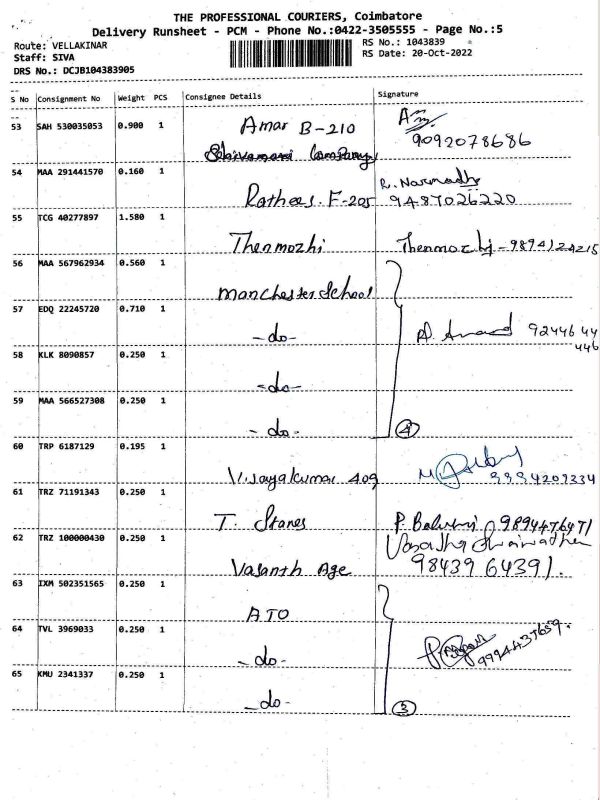 THE PROFESSIONAL COURIERS, Coimbatore
Delivery Runsheet - PCM - Phone No.:0422-3505555 - Page No.:5
Route: VELLAKINAR RS No.: 1043839
Staff: SIVA RS Date: 20-Oct-2022
DRS No.: DCJB104383905
S No Consignment No Weight PCS Consignee Details Signature
53 SAH 530035053 0.900 1 Amar B-210
9092078686
Company
54 MAA 291441570 0.160 1 R. Narmadha
F-205 9487026220
55 TCG 40277897 1.580 1
Thenmozhi Thenmozhi - 9894124215
56 MAA 567962934 0.560 1
Manchester School
57 EDQ 22245720 0.710 1
-do- 9244644
446
58 KLK 8090857 0.250 1
-do-
59 MAA 566527308 0.250 1
-do- 4
60 TRP 6187129 0.195 1
Vijayakumar 409 9994209334
61 TRZ 71191343 0.250 1
T. Stanes 9894476471
62 TRZ 100000430 0.250 1
Vasanth Age 98439 64391.
63 IXM 502351565 0.250 1
ATO
64 TVL 3969033 0.250 1
-do- 9994437659.
65 KMU 2341337 0.250 1
-do- 3